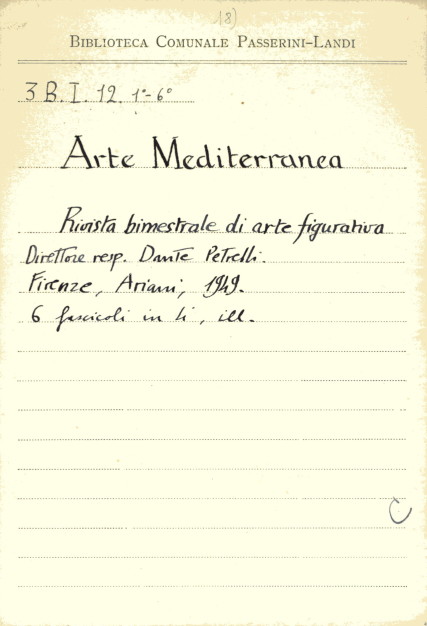 18)
BIBLIOTECA COMUNALE PASSERINI-LANDI
3 B. I. 12. 1°-6°
Arte Mediterranea
Rivista bimestrale di arte figurativa
Direttore resp. Dante Petrelli.
Firenze, Ariani, 1949.
6 fascicoli in ii, ill.
C